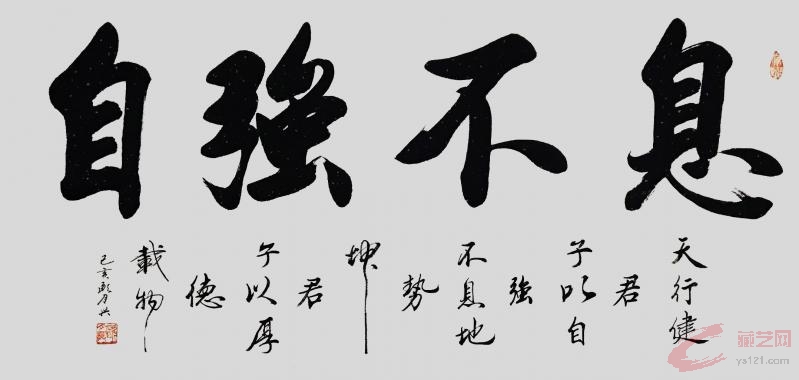 自強不息
天行健
君
子以自
強
不息地
勢
坤
君
子以厚
德
載物
己亥
藏艺网
ys121.com